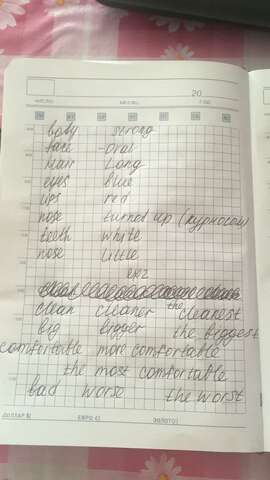 20
число месяц год
body strong
face - oval
hair long
eyes blue
lips red
nose turned up (курносый)
teeth white
nose little
ex2
clean cleaner the cleanest
big bigger the biggest
comfortable more comfortable
the most comfortable
bad worse the worst
ДОЛЛАР $( ЕВРО €( ЗОЛОТО(